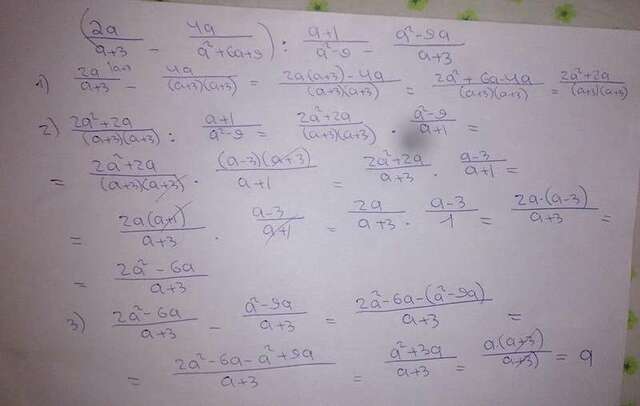 (2a/(a+3) - 4a/(a²+6a+9)) : (a+1)/(a²-9) - (a²-9a)/(a+3)
1) 2a/(a+3) |a+3 - 4a/((a+3)(a+3)) = (2a(a+3)-4a)/((a+3)(a+3)) = (2a²+6a-4a)/((a+3)(a+3)) = (2a²+2a)/((a+3)(a+3))
2) (2a²+2a)/((a+3)(a+3)) : (a+1)/(a²-9) = (2a²+2a)/((a+3)(a+3)) · (a²-9)/(a+1) =
= (2a²+2a)/((a+3)(a+3)) · ((a-3)(a+3))/(a+1) = (2a²+2a)/(a+3) · (a-3)/(a+1) =
= (2a(a+1))/(a+3) · (a-3)/(a+1) = 2a/(a+3) · (a-3)/1 = (2a·(a-3))/(a+3) =
= (2a²-6a)/(a+3)
3) (2a²-6a)/(a+3) - (a²-9a)/(a+3) = (2a²-6a-(a²-9a))/(a+3) =
= (2a²-6a-a²+9a)/(a+3) = (a²+3a)/(a+3) = (a(a+3))/(a+3) = a